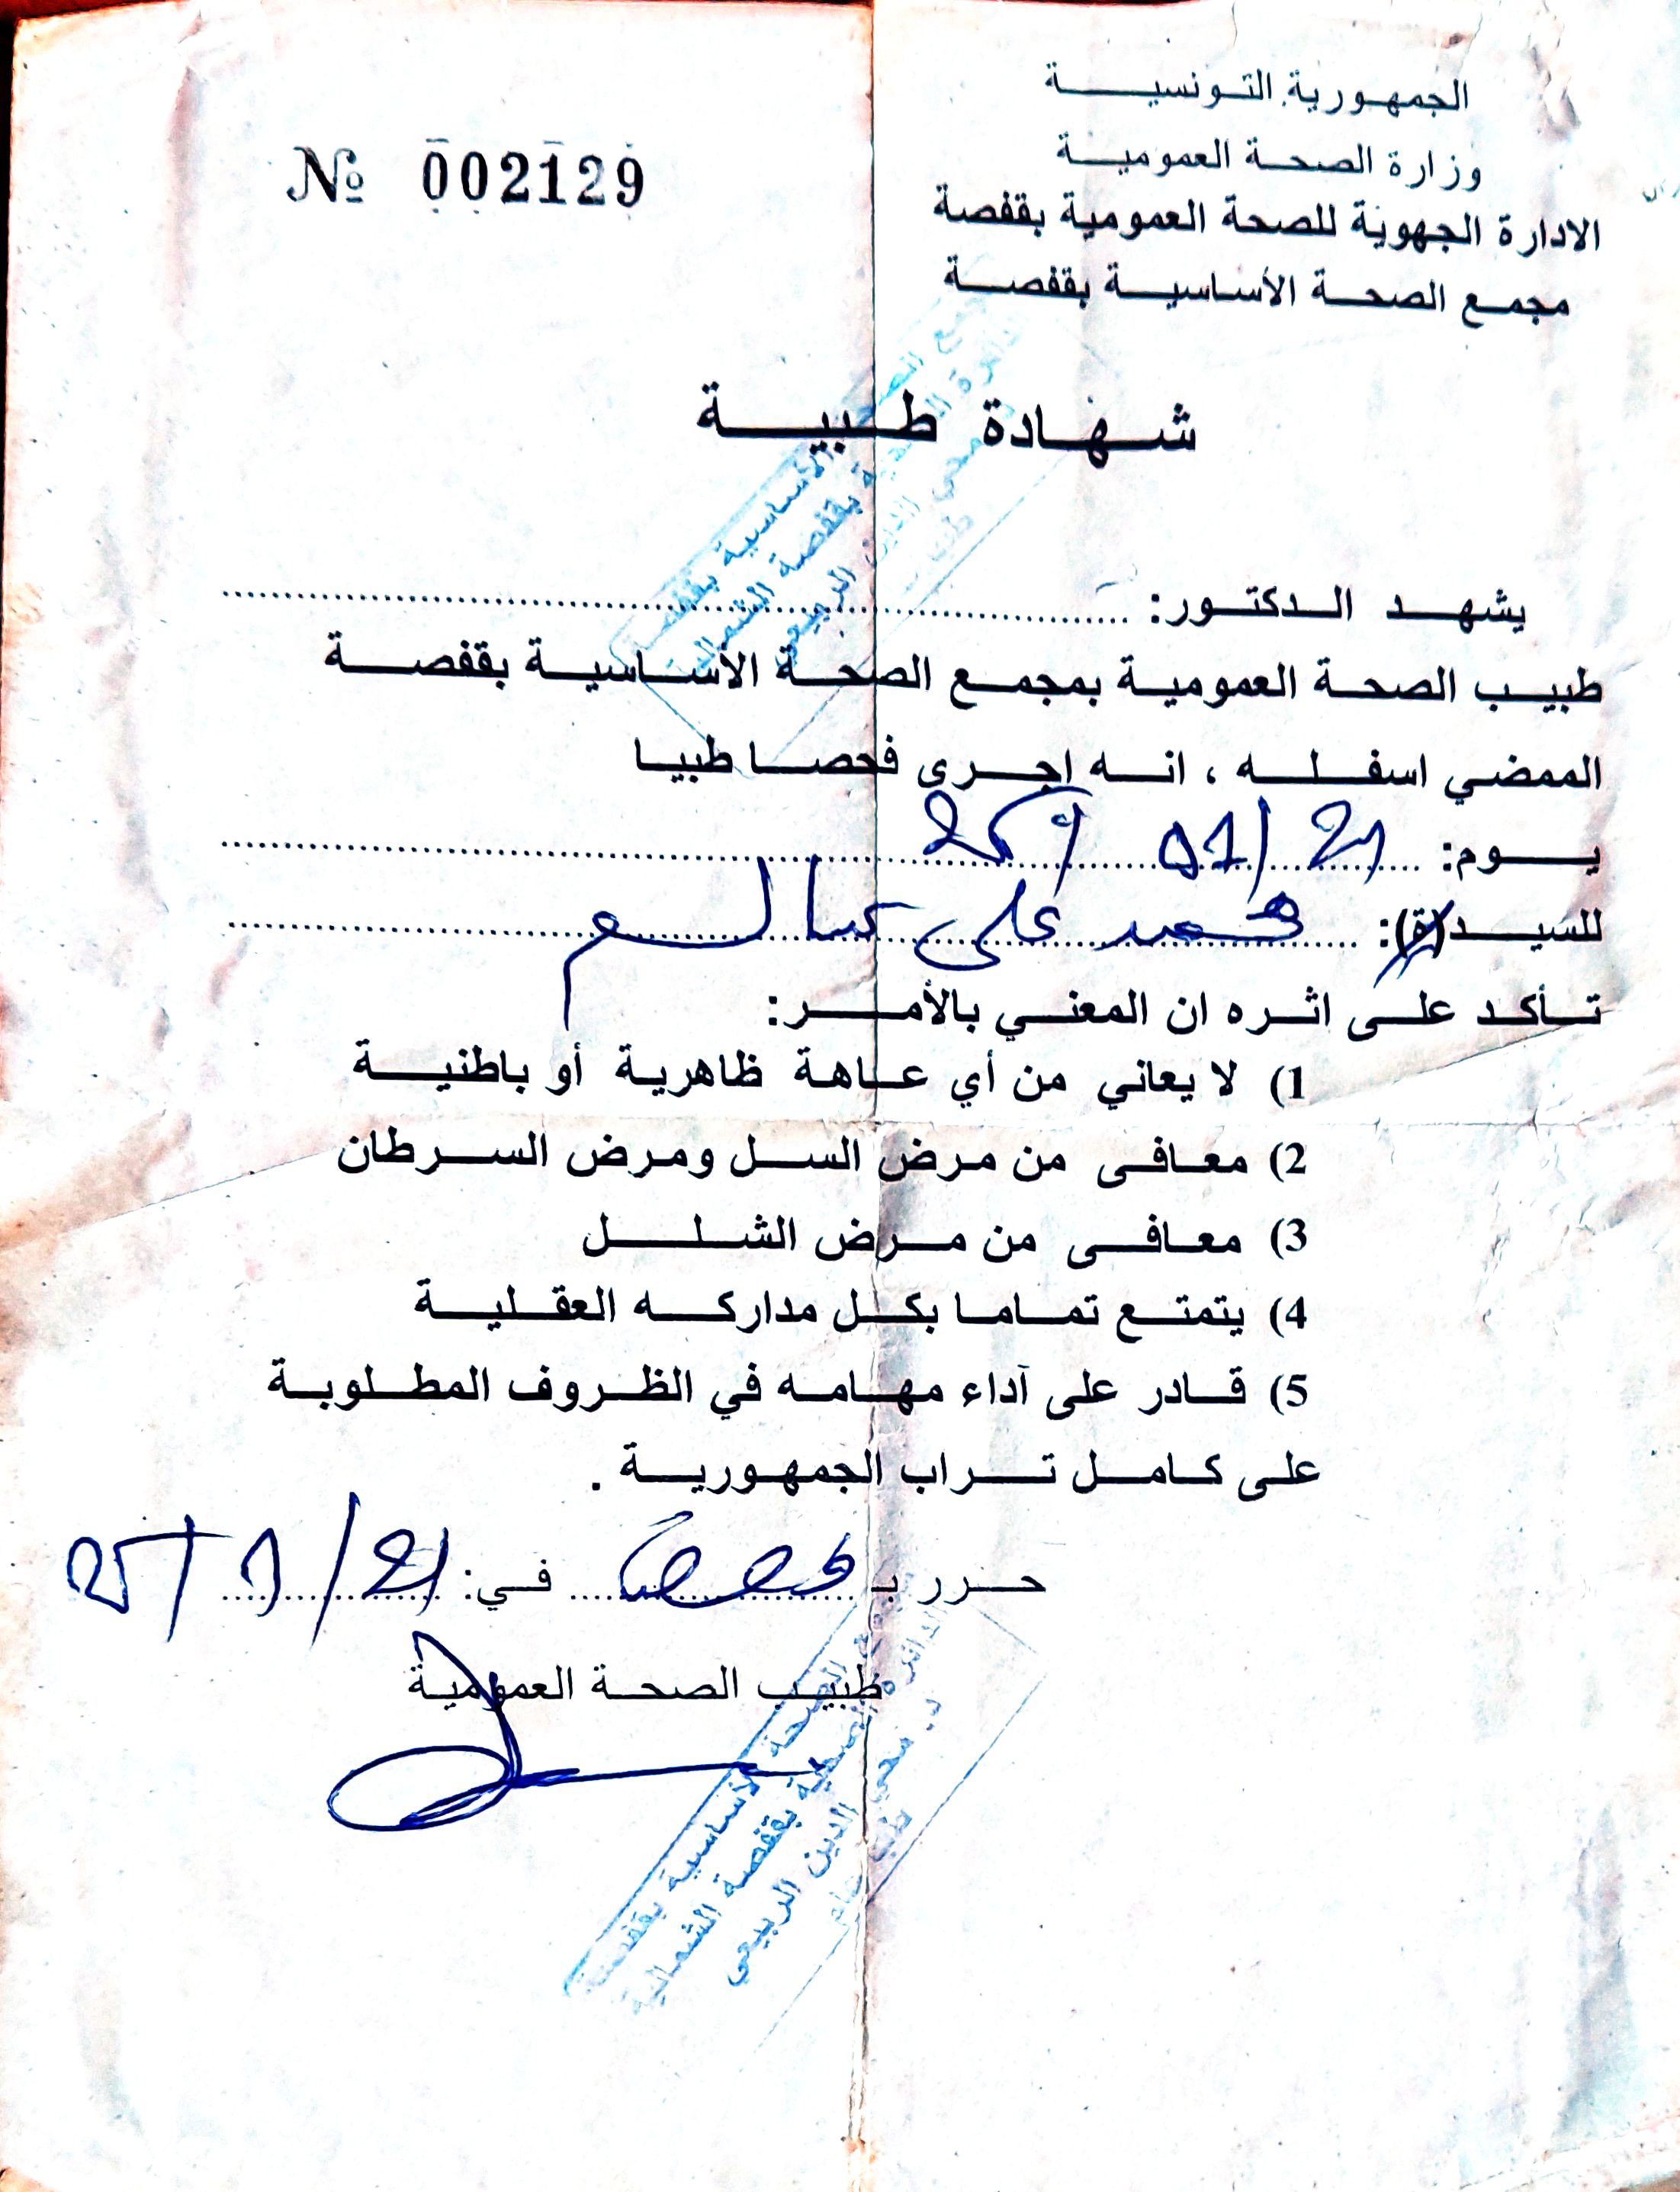 الجمهورية التونسية
وزارة الصحة العمومية
الادارة الجهوية للصحة العمومية بقفصة
مجمع الصحة الأساسية بقفصة
№ 002129
شهادة طبية
يشهد الدكتور:
طبيب الصحة العمومية بمجمع الصحة الأساسية بقفصة
الممضي اسفله ، انه اجرى فحصا طبيا
يوم: 21/01/25
للسيد(ة): محمد علي سالم
تأكد على اثره ان المعني بالأمر:
1) لا يعاني من أي عاهة ظاهرية أو باطنية
2) معافى من مرض السل ومرض السرطان
3) معافى من مرض الشلل
4) يتمتع تماما بكل مداركه العقلية
5) قادر على آداء مهامه في الظروف المطلوبة
على كامل تراب الجمهورية .
حرر بـ قفصة في: 21/1/25
طبيب الصحة العمومية
الصحة الأساسية بقفصة
الدائرة الصحية بقفصة الشمالية
د. محي الدين الربيعي
طب عام